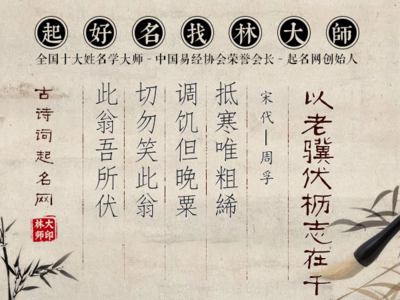 起好名找林大師
全国十大姓名学大师-中国易经协会荣誉会长-起名网创始人
以老骥伏枥志在千
宋代—周孚
抵寒唯粗絺
调饥但晚粟
切勿笑此翁
此翁吾所伏
古诗词起名网
大印
林师